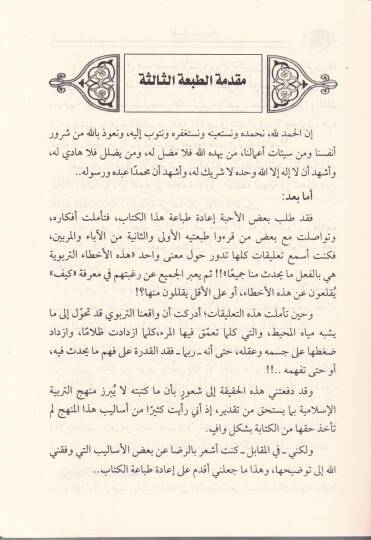 مقدمة الطبعة الثالثة
إن الحمد لله، نحمده ونستعينه ونستغفره ونتوب إليه، ونعوذ بالله من شرور
أنفسنا ومن سيئات أعمالنا، من يهده الله فلا مضل له، ومن يضلل فلا هادي له،
وأشهد أن لا إله إلا الله وحده لا شريك له، وأشهد أن محمدًا عبده ورسوله..
أما بعد:
فقد طلب بعض الأحبة إعادة طباعة هذا الكتاب، فتأملت أفكاره،
وتواصلت مع بعض من قرءوا طبعتيه الأولى والثانية من الآباء والمربين،
فكنت أسمع تعليقات كلها تدور حول معنى واحد «هذه الأخطاء التربوية
هي بالفعل ما يحدث منا جميعًا»!! ثم يعبر الجميع عن رغبتهم في معرفة «كيف»
يُقلعون عن هذه الأخطاء، أو على الأقل يقللون منها؟!
وحين تأملت هذه التعليقات؛ أدركت أن واقعنا التربوي قد تحوّل إلى ما
يشبه مياه المحيط، والتي كلما تعمّق فيها المرء، كلما ازدادت ظلامًا، وازداد
ضغطها على جسمه وعقله، حتى أنه ـ ربما ـ فقد القدرة على فهم ما يحدث فيه،
أو حتى تفهمه ..!!
وقد دفعتني هذه الحقيقة إلى شعورٍ بأن ما كتبته لا يُبرز منهج التربية
الإسلامية بما يستحق من تقدير، إذ أني رأيت كثيرًا من أساليب هذا المنهج لم
تأخذ حقها من الكتابة بشكل وافٍ.
ولكني ـ في المقابل ـ كنت أشعر بالرضا عن بعض الأساليب التي وفقني
الله إلى توضيحها، وهذا ما جعلني أقدم على إعادة طباعة الكتاب..